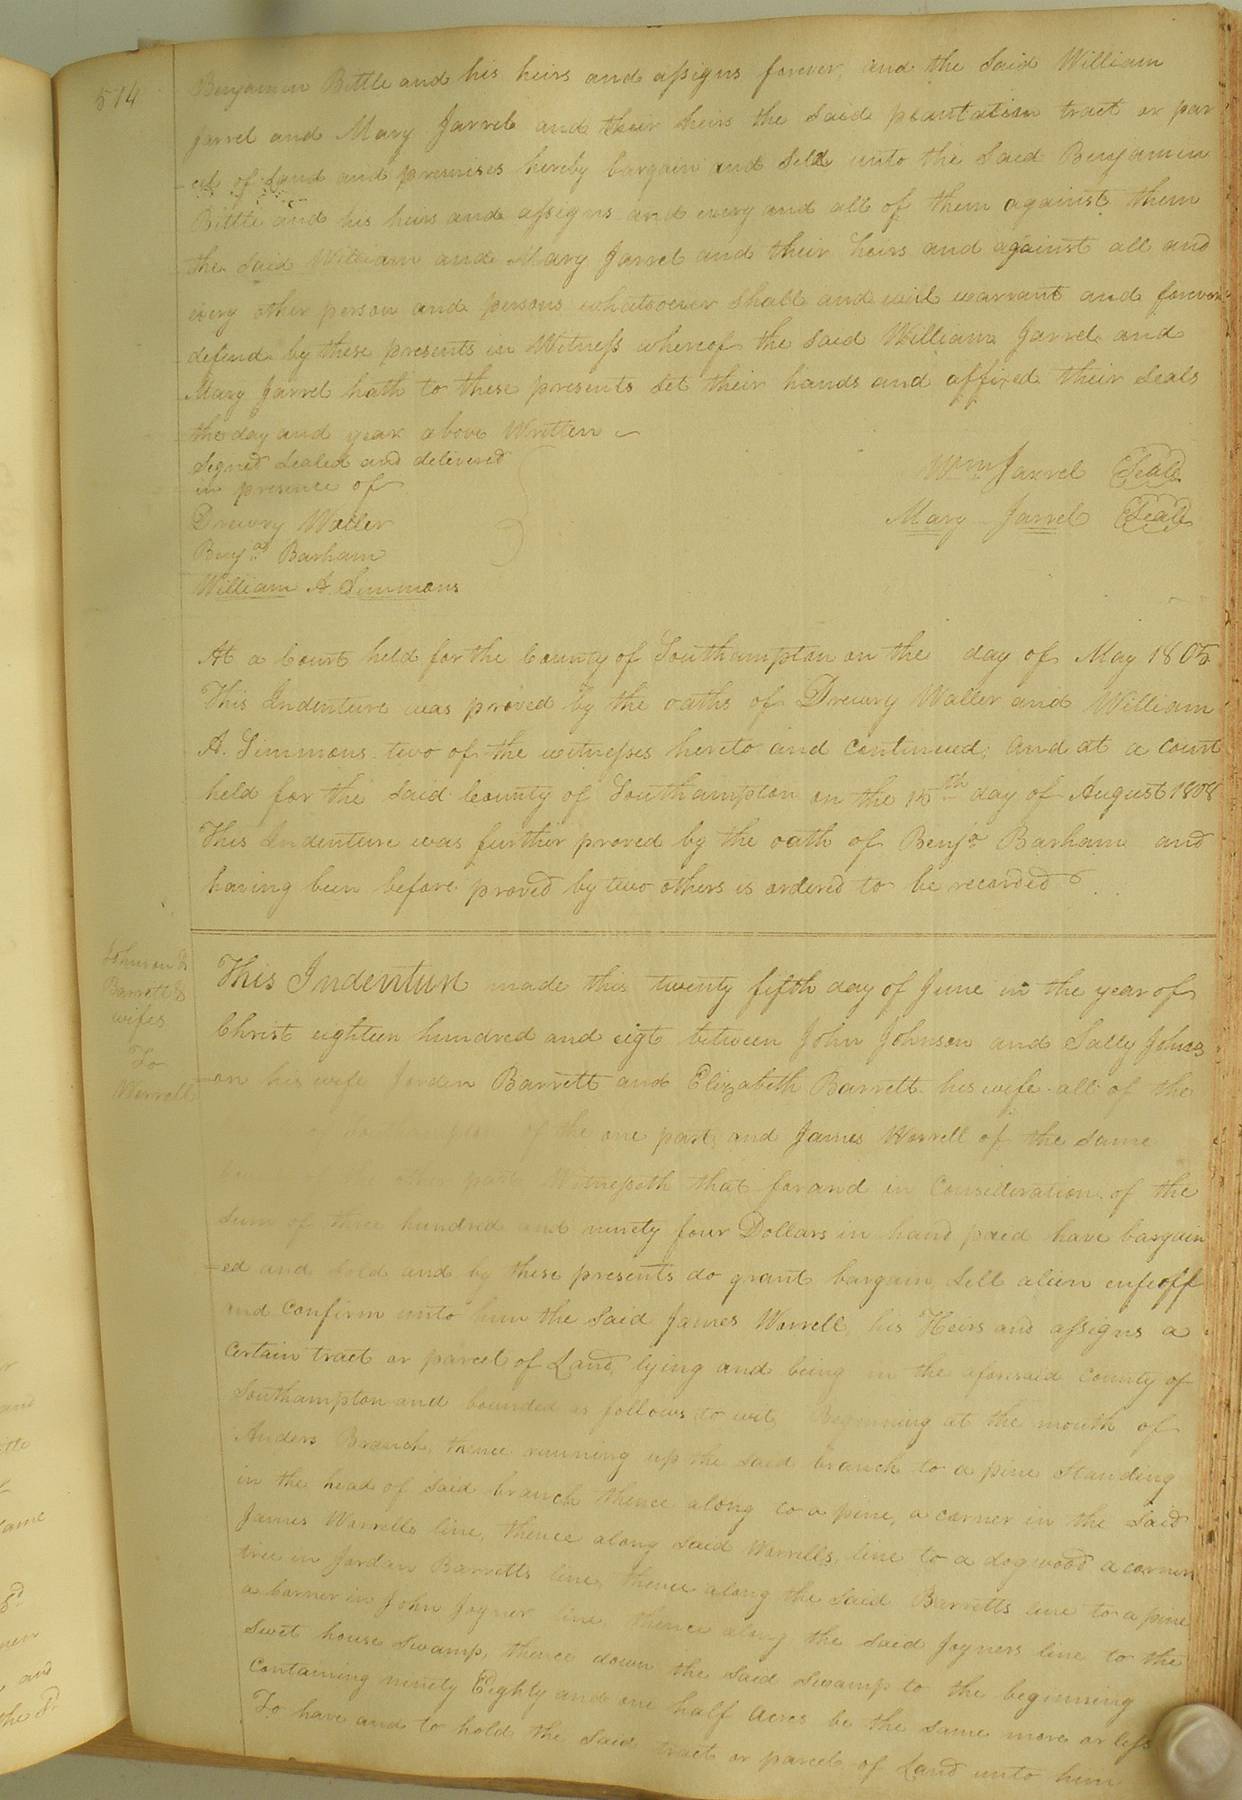 514
Benjamin Bittle and his heirs and assigns forever, and the Said William
Jarrel and Mary Jarrel and their heirs the Said plantation tract or par
cel of Land and premises hereby bargain and Seld unto the Said Benjamin
Bittle and his heirs and assigns and every and all of them against them
the Said William and Mary Jarrel and their heirs and against all and
every other person and persons whatsoever Shall and will warrant and forever
defend by these presents in Witness whereof the Said William Jarrel and
Mary Jarrel hath to these presents Set their hands and affixed their Seals
the day and year above Written
Signed Sealed and delivered
in presence of
Drewry Waller
Benja Barham
William A. Simmons
Wm Jarrel Seal
Mary Jarrel Seal
At a Court held for the County of Southampton on the day of May 1805
This Indenture was proved by the oaths of Drewry Waller and William
A. Simmons two of the witnesses hereto and continued; and at a court
held for the Said County of Southampton on the 15th day of August 1808
This Indenture was further proved by the oath of Benja Barham and
having been before proved by two others is ordered to be recorded
Johnson &
Barrett &
wifes
To
Worrell
This Indenture made this twenty fifth day of June in the year of
Christ eighteen hundred and eigt between John Johnson and Sally Johns
on his wife Jordan Barrett and Elizabeth Barrett his wife all of the
of Southampton of the one part and James Worrell of the Same
the other part Witnesseth that for and in Consideration of the
Sum of three hundred and ninety four Dollars in hand paid have bargain
ed and Sold and by these presents do grant bargain Sell alien enfeoff
and Confirm unto him the Said James Worrell his Heirs and assigns a
Certain tract or parcel of Land, lying and being in the aforesaid County of
Southampton and bounded as follows to wit, Beginning at the mouth of
Anders Branch, thence running up the Said branch to a pine Standing
in the head of Said branch thence along to a pine, a corner in the Said
James Worrells line, thence along Said Worrells line to a dogwood a corner
tree in Jordan Barretts line, thence along the Said Barretts line to a pine
a Corner in John Joyner line, thence along the Said Joyners line to the
Swet house Swamp, thence down the Said Swamp to the beginning
Containing ninety Eighty and one half Acres be the Same more or less
To have and to hold the Said tract or parcel of Land unto him